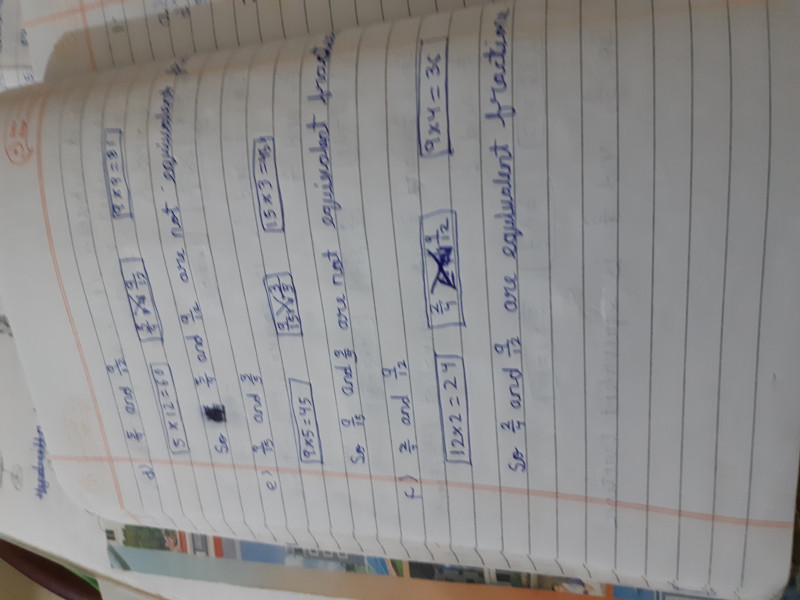 d) 5/9 and 9/12
5 x 12 = 60 9 x 9 = 81
So and 9/12 are not equivalent
e) 9/15 and 3/5
9 x 5 = 45 9/15 3/5 15 x 3 = 45
So 9/15 and 3/5 are not equivalent fraction
f) 2/4 and 9/12
12 x 2 = 24 2/4 9/12 9 x 4 = 36
So 2/4 and 9/12 are equivalent fraction